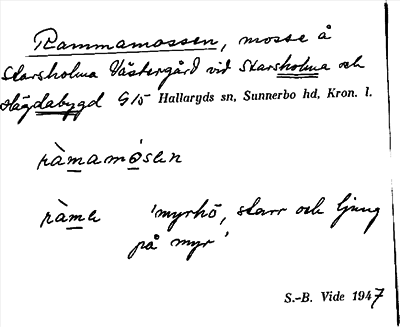 Rammamossen, mosse å
Starsholma Västergård vid Starsholma och
Hägdabygd G15 Hallaryds sn, Sunnerbo hd, Kron. l.
ràmamòsen
ràme 'myrhö, starr och ljung
på myr'
S.-B. Vide 1947